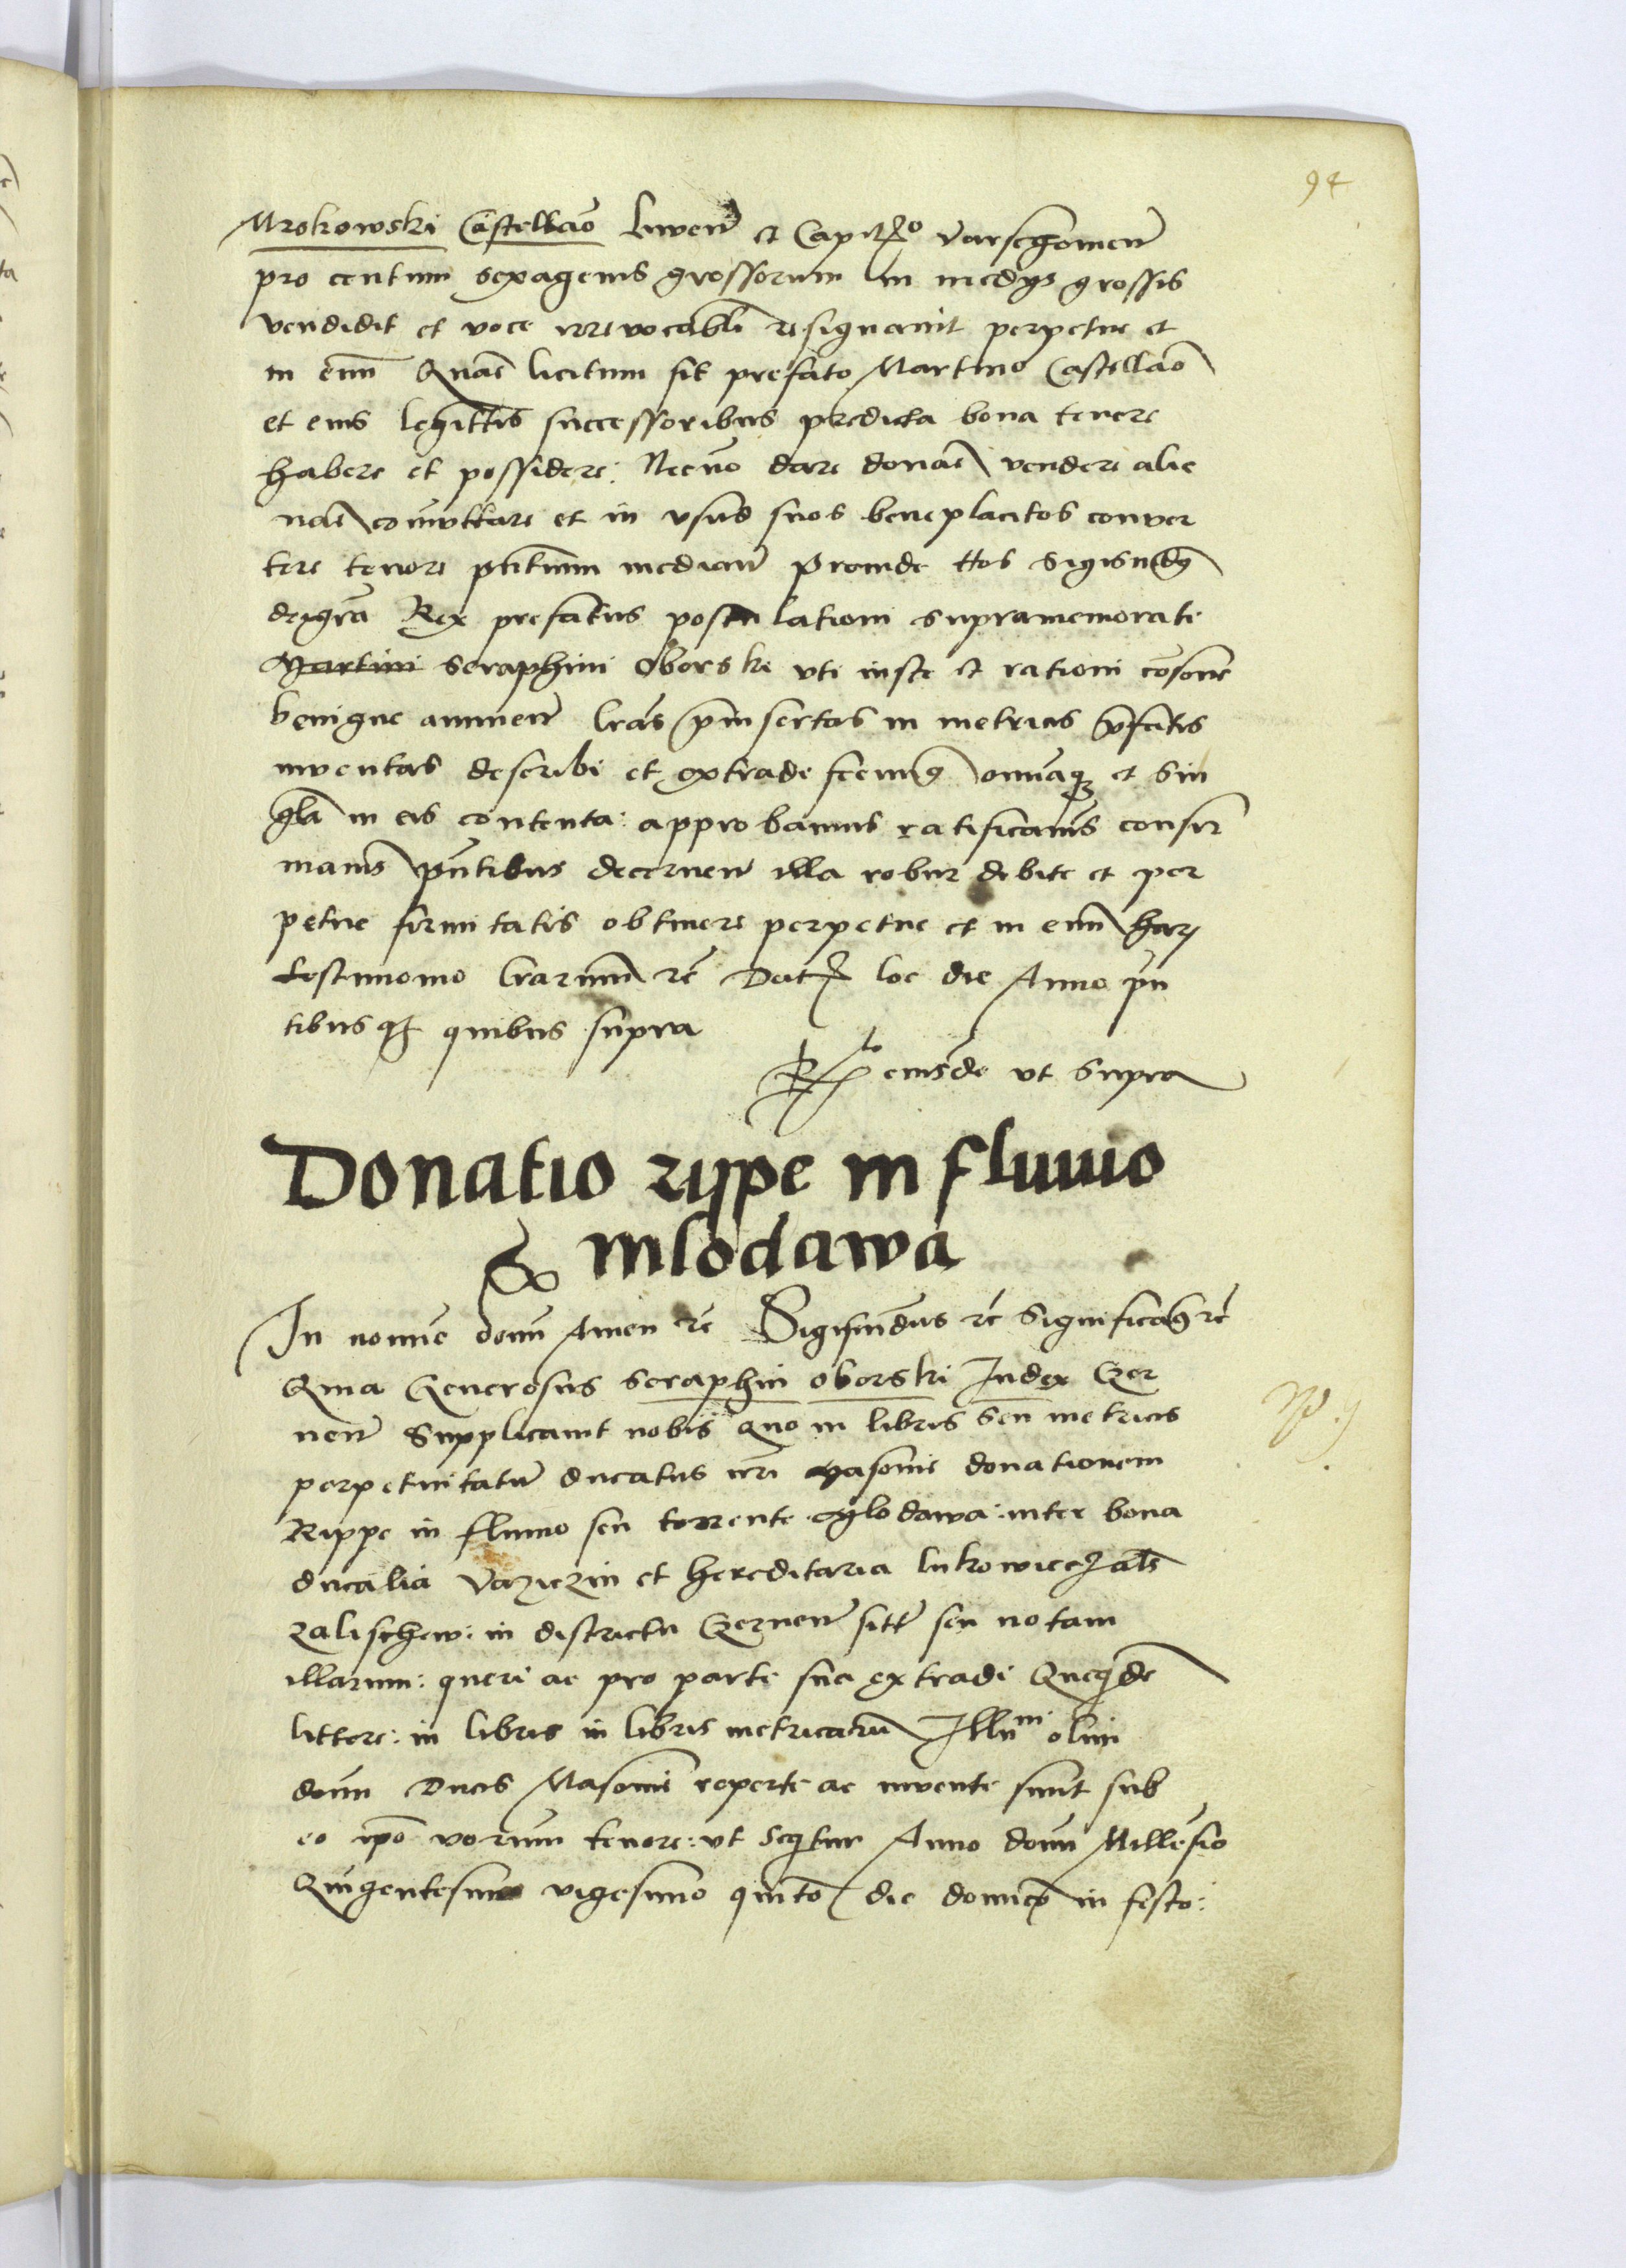 94
Mrokowski Castellāo liven̄ et Capit̄o varschovien̄
pro centum sexagenis grossorum in medijs grossis
vendidit et voce irrevocabli resignavit perpetue et
in evū Quare licitum sit prefato Martino Castellāo
et eius legittīs successoribus predicta bona tenere
habere et possidere: Necnō dare donare vendere alie
nare cōmuttare et in usus suos beneplacitos conver
tere tenore pn̄tium median̄ Proinde Nos Sigismūdꝰ
dei gr̄a Rex prefatus postulationi supramemorati
Martini Seraphini Oborski uti iuste et rationi cōsone
benigne annuen̄ lr̄as p̄insertas in metricis p̄fatis
inventas describi et extradi fecimꝰ omniaqꝫ et sin
gl̄a in eis contenta: approbamus ratificamꝰ confir
mamꝰ pn̄tibus decernen̄ illa robur debite et per
petue firmitatis obtinere perpetue et in evū harꝫ
testimonio l̄rarum rc̄ Dat̄ loc die Anno pn̄
tibus qꝫ quibus supra
R̄to eiusdē ut supra
Donatio rype in fluvio
mlodawa
In nomīe domī Amen rc̄ Sigismūdus rc̄ Significamꝰ rc̄
Quia Generosus Seraphin Oborski Iudex Cer
nen̄ Supplicavit nobis quō in libris seu metricis
perpetuitatū ducatus nr̄i Masovie donationem
Rippe in fluvio seu torrente Mlodawa: inter bona
ducalia vaziczin et hereditaria lukowiecz al̄s
zalischew: in districtu Cernen̄ sit̄ seu notam
illarum: queri ac pro parte sua extradi Queqͥdē
littere: in libris in libris metricarū Ill̄m olim
domī Ducis Masovie reperte ac invente sunt sub
eo ip̄o verum tenore: ut seqͥtur Anno domī Millesīo
Quingentesimo vigesimo quīto die dominicō in festo: